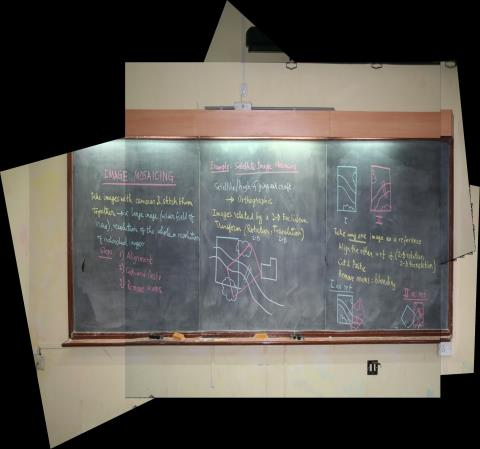 IMAGE MOSAICING
Take images with cameras & stitch them
together → a large image (wider field of
view), resolution of the whole = resolution
of individual images
Steps 1) Alignment
2) Cut-and-Paste
3) Remove seams
Example: Satellite Image Mosaicing
Satellite/high-flying aircraft
→ Orthographic
Images related by a 2-D Euclidean
Transform (Rotation + Translation)
2-D 2-D
I II
Take any one image as a reference
Align the other w.r.t. it (2-D rotation
2-D translation)
Cut & Paste
Remove seams: blending
I as ref
II as ref